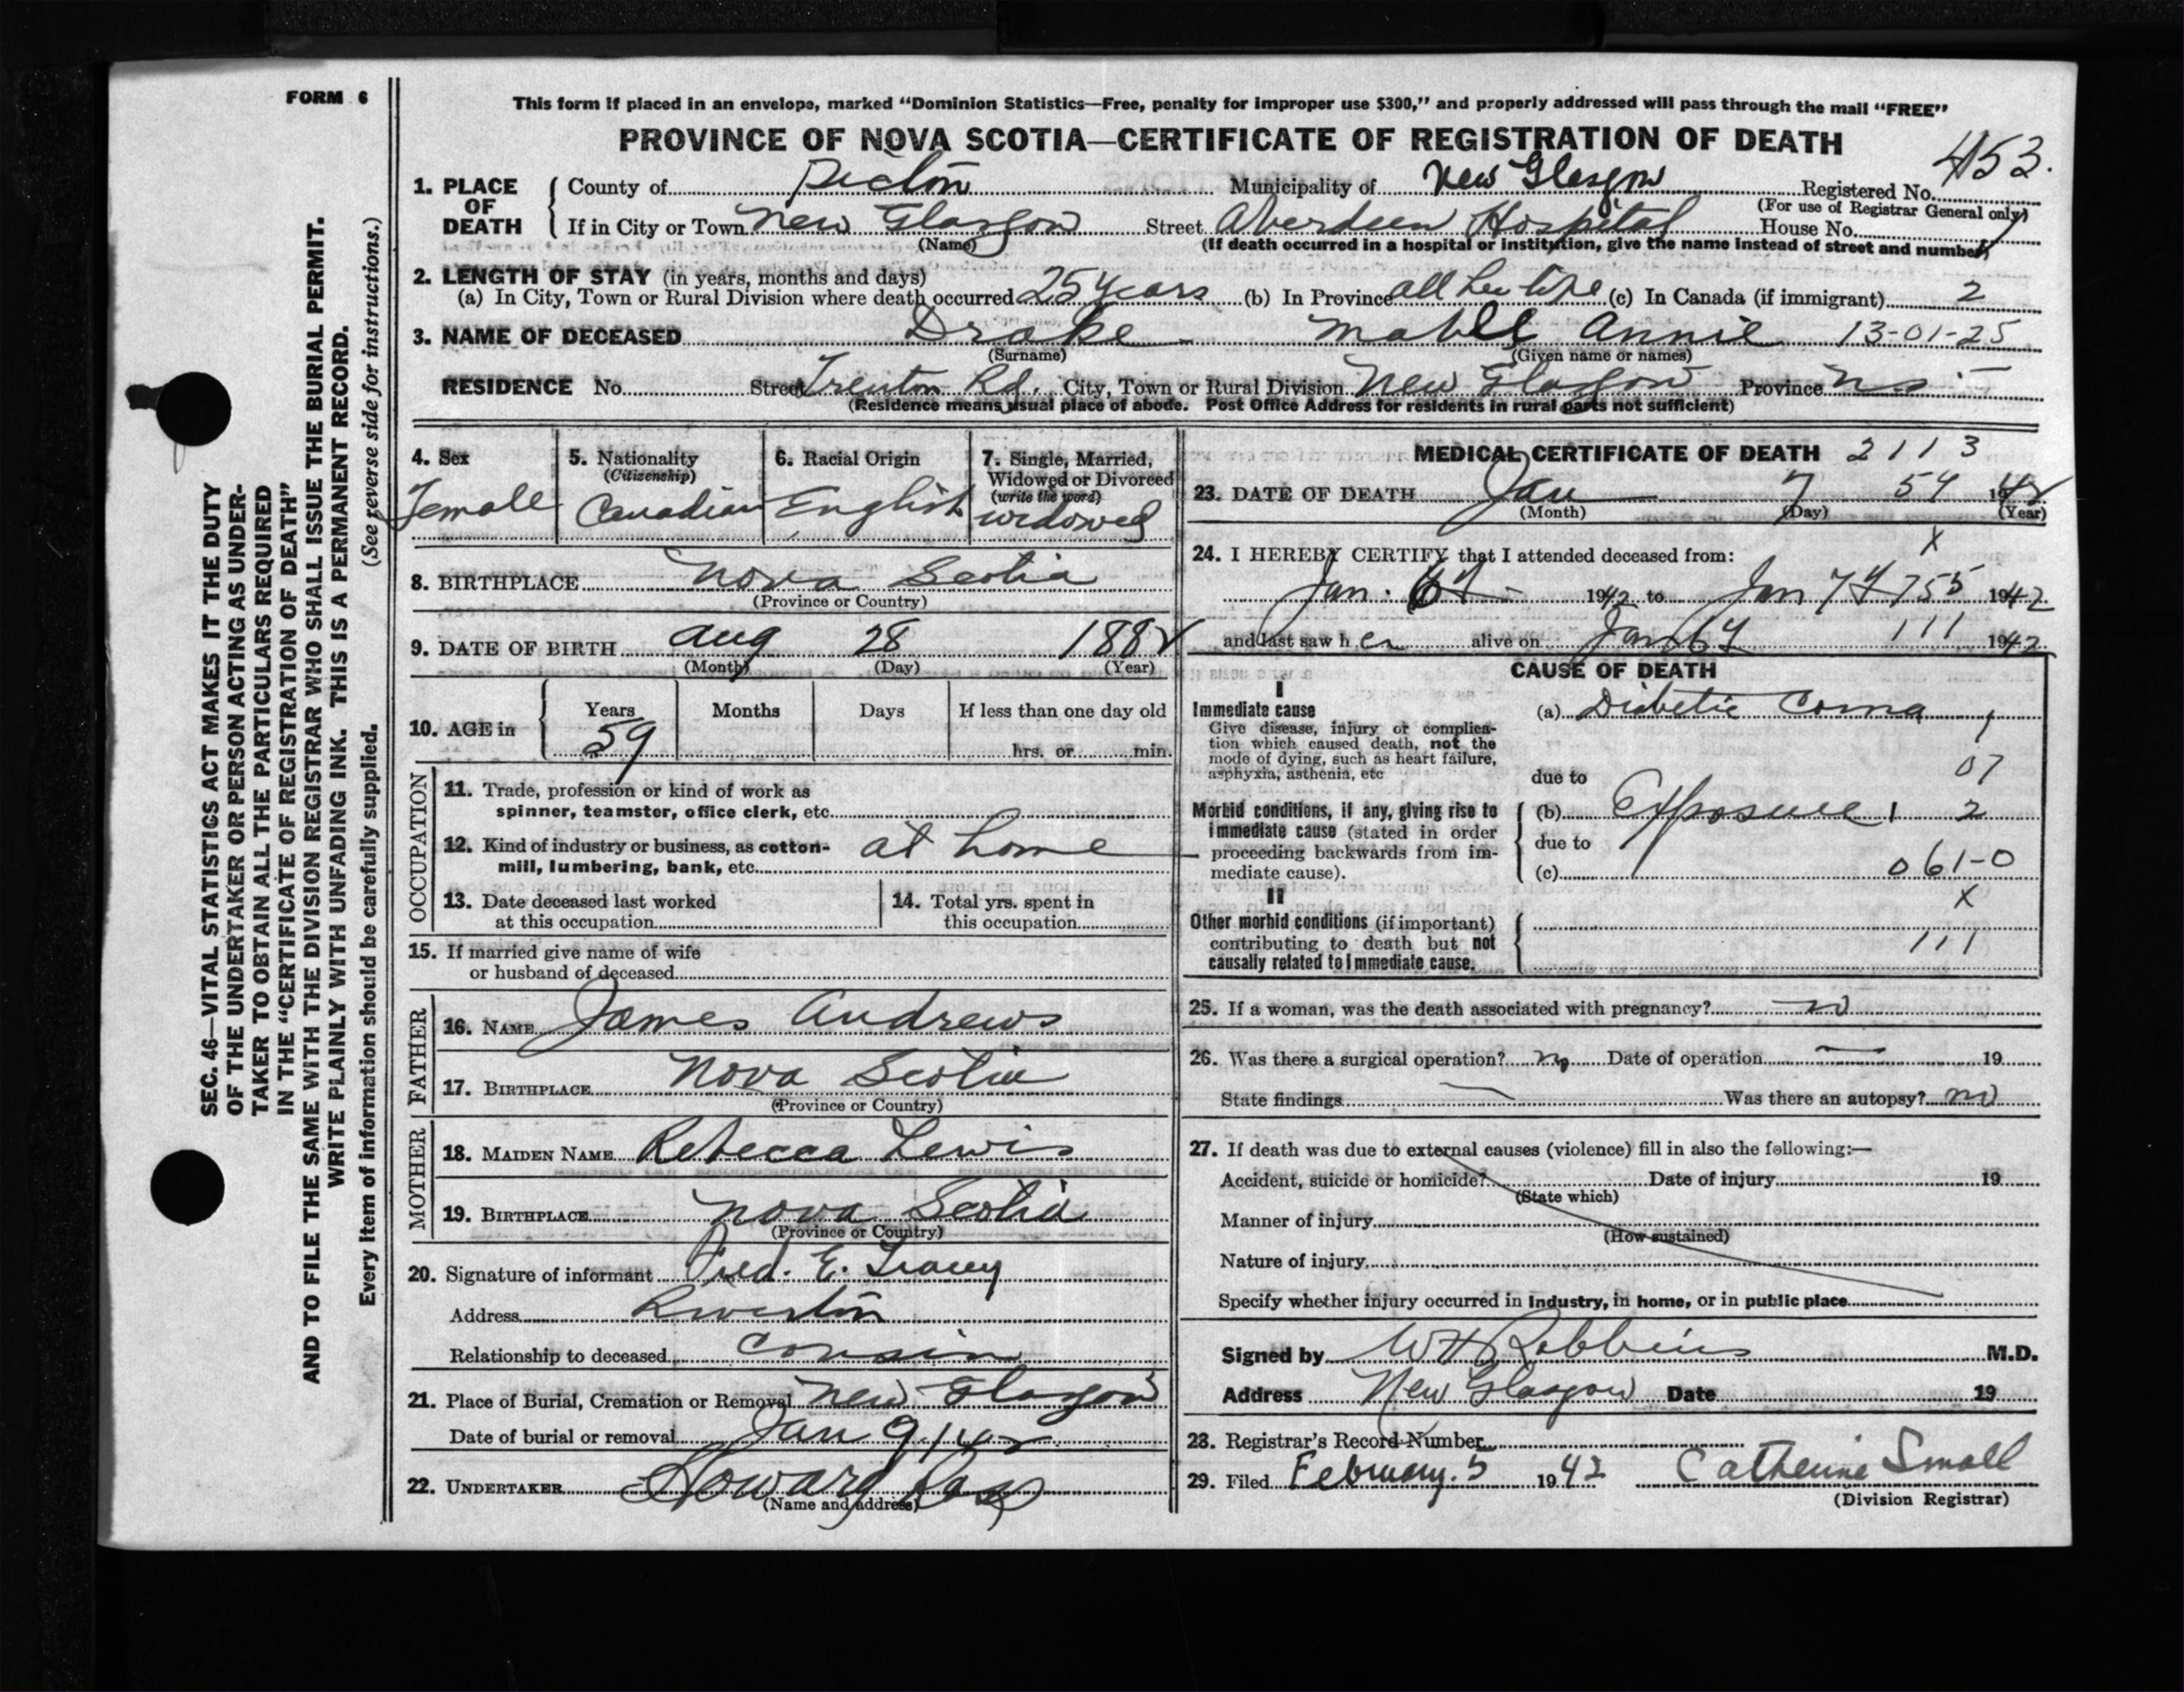 FORM 6
This form if placed in an envelope, marked "Dominion Statistics—Free, penalty for improper use $300," and properly addressed will pass through the mail "FREE"
PROVINCE OF NOVA SCOTIA—CERTIFICATE OF REGISTRATION OF DEATH
453.
1. PLACE OF DEATH
County of Pictou Municipality of New Glasgow Registered No.
(For use of Registrar General only)
If in City or Town New Glasgow Street Aberdeen Hospital House No.
(Name) (If death occurred in a hospital or institution, give the name instead of street and number)
2. LENGTH OF STAY (in years, months and days)
(a) In City, Town or Rural Division where death occurred 25 years (b) In Province all her life (c) In Canada (if immigrant) 2
3. NAME OF DECEASED Drake Mabel Annie 13-01-25
(Surname) (Given name or names)
RESIDENCE No. Street Trenton Rd. City, Town or Rural Division New Glasgow Province N.S.
(Residence means usual place of abode. Post Office Address for residents in rural parts not sufficient)
4. Sex
Female
5. Nationality
(Citizenship)
Canadian
6. Racial Origin
English
7. Single, Married,
Widowed or Divorced
(write the word)
widowed
8. BIRTHPLACE Nova Scotia
(Province or Country)
9. DATE OF BIRTH Aug 28 1882
(Month) (Day) (Year)
10. AGE in
Years Months Days If less than one day old
59 hrs. or min.
OCCUPATION
11. Trade, profession or kind of work as
spinner, teamster, office clerk, etc.
12. Kind of industry or business, as cotton-
mill, lumbering, bank, etc. at home
13. Date deceased last worked
at this occupation
14. Total yrs. spent in
this occupation
15. If married give name of wife
or husband of deceased
FATHER
16. NAME James Andrews
17. BIRTHPLACE Nova Scotia
(Province or Country)
MOTHER
18. MAIDEN NAME Rebecca Lewis
19. BIRTHPLACE Nova Scotia
(Province or Country)
20. Signature of informant Fred. E. Tracey
Address Riverton
Relationship to deceased Cousin
21. Place of Burial, Cremation or Removal New Glasgow
Date of burial or removal Jan 9/42
22. UNDERTAKER Howard
(Name and address)
MEDICAL CERTIFICATE OF DEATH 2113
23. DATE OF DEATH Jan 7 59 1942
(Month) (Day) (Year)
X
24. I HEREBY CERTIFY that I attended deceased from:
Jan. 6th 1942 to Jan 7th 755 1942
and last saw her alive on Jan 6th 111 1942
CAUSE OF DEATH
I
Immediate cause
Give disease, injury or complica-
tion which caused death, not the
mode of dying, such as heart failure,
asphyxia, asthenia, etc
(a) Diabetic Coma 1
07
due to
Morbid conditions, if any, giving rise to
immediate cause (stated in order
proceeding backwards from im-
mediate cause).
(b) Exposure 1 2
due to
(c) 061-0
X
II
Other morbid conditions (if important)
contributing to death but not
causally related to immediate cause.
111
25. If a woman, was the death associated with pregnancy? no
26. Was there a surgical operation? no Date of operation — 19
State findings — Was there an autopsy? no
27. If death was due to external causes (violence) fill in also the following:—
Accident, suicide or homicide? Date of injury 19
(State which)
Manner of injury
(How sustained)
Nature of injury
Specify whether injury occurred in industry, in home, or in public place
Signed by WH Robbins M.D.
Address New Glasgow Date 19
28. Registrar's Record Number
29. Filed February. 5 1942 Catherine Small
(Division Registrar)
SEC. 46—VITAL STATISTICS ACT MAKES IT THE DUTY
OF THE UNDERTAKER OR PERSON ACTING AS UNDER-
TAKER TO OBTAIN ALL THE PARTICULARS REQUIRED
IN THE "CERTIFICATE OF REGISTRATION OF DEATH"
AND TO FILE THE SAME WITH THE DIVISION REGISTRAR WHO SHALL ISSUE THE BURIAL PERMIT.
WRITE PLAINLY WITH UNFADING INK. THIS IS A PERMANENT RECORD.
Every item of information should be carefully supplied. (See reverse side for instructions.)